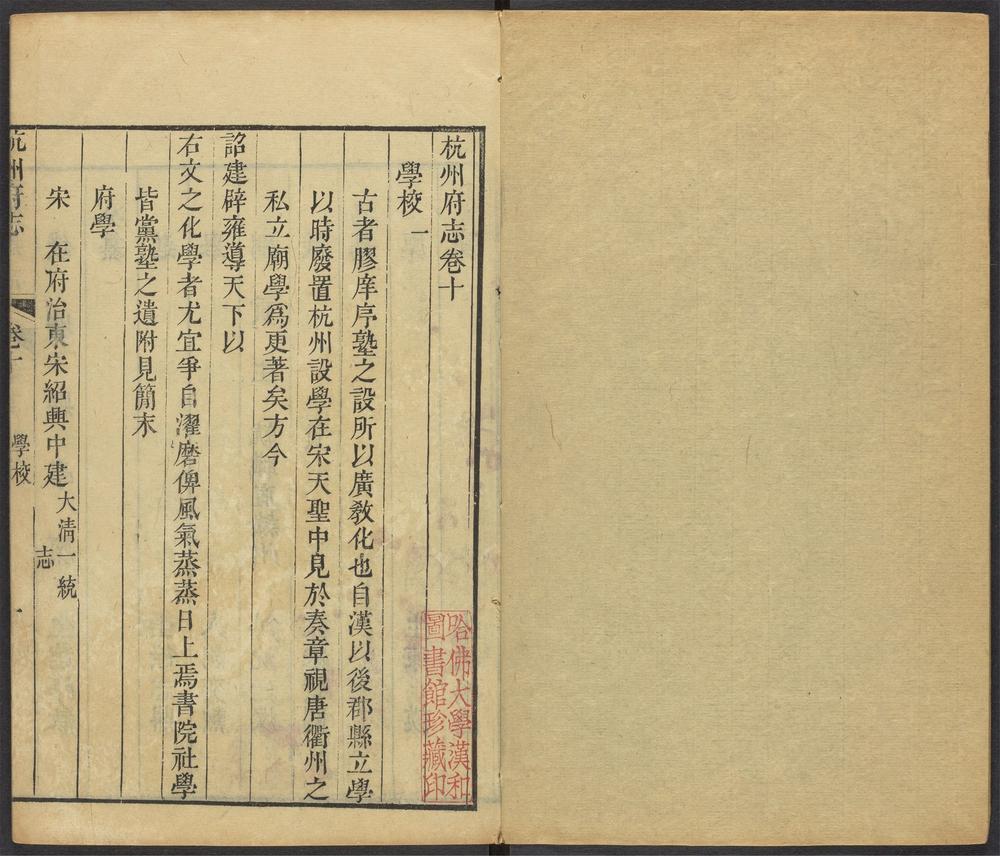 杭州府志卷十
學校一
古者膠庠序塾之設所以廣敎化也自漢以後郡縣立學
以時廢置杭州設學在宋天聖中見於奏章視唐衢州之
私立廟學爲更著矣方今
詔建辟雍導天下以
右文之化學者尤宜爭自濯磨俾風氣蒸蒸日上焉書院社學
皆黨塾之遺附見簡末
府學
宋 在府治東宋紹興中建大淸一統志
杭州府志 卷十 學校 一
哈佛大學漢和
圖書館珍藏印